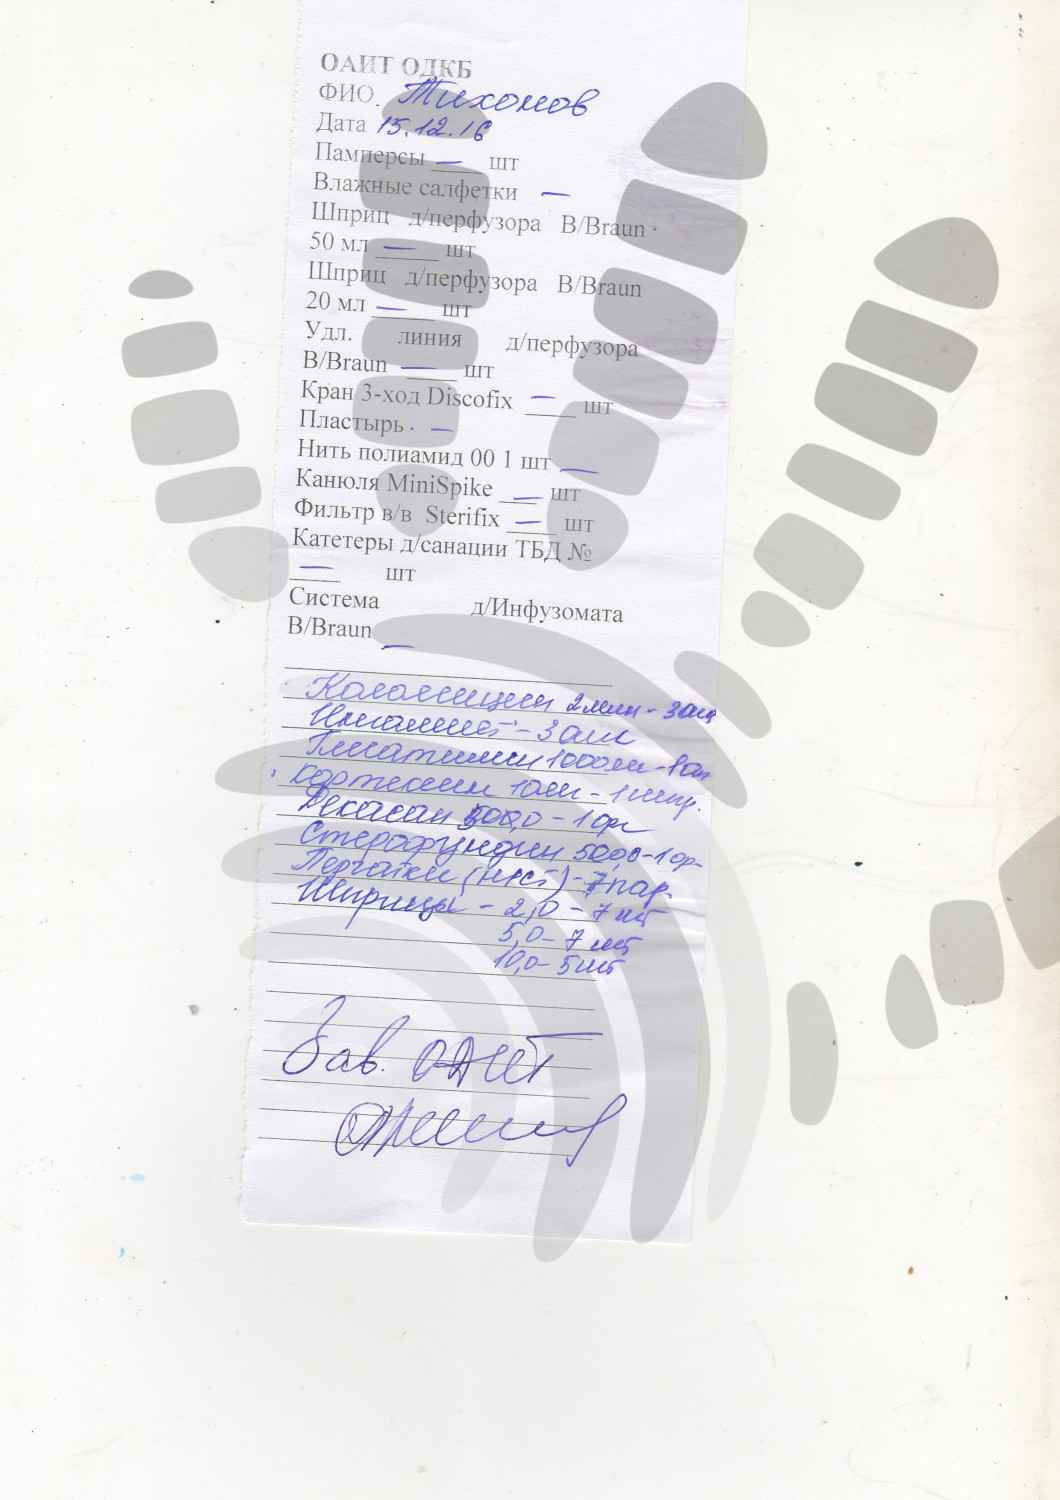 ОАИТ ОДКБ
ФИО. Тихонов
Дата 15.12.16
Памперсы — шт
Влажные салфетки —
Шприц д/перфузора B/Braun
50 мл — шт
Шприц д/перфузора B/Braun
20 мл — шт
Удл. линия д/перфузора
B/Braun — шт
Кран 3-ход Discofix — шт
Пластырь. —
Нить полиамид 00 1 шт —
Канюля MiniSpike — шт
Фильтр в/в Sterifix — шт
Катетеры д/санации ТБД №
— шт
Система д/Инфузомата
B/Braun —
2 млн -
- 3 амп
1000мг - 1 фл
Кортексин 10мг - 1 шпр.
Декасан 500,0 - 1 фл
Стерофундин 500,0 - 1 фл
Перчатки (н/ст) - 7 пар.
Шприцы - 2,0 - 7 шт
5,0 - 7 шт
10,0 - 5 шт
Зав. ОАИТ